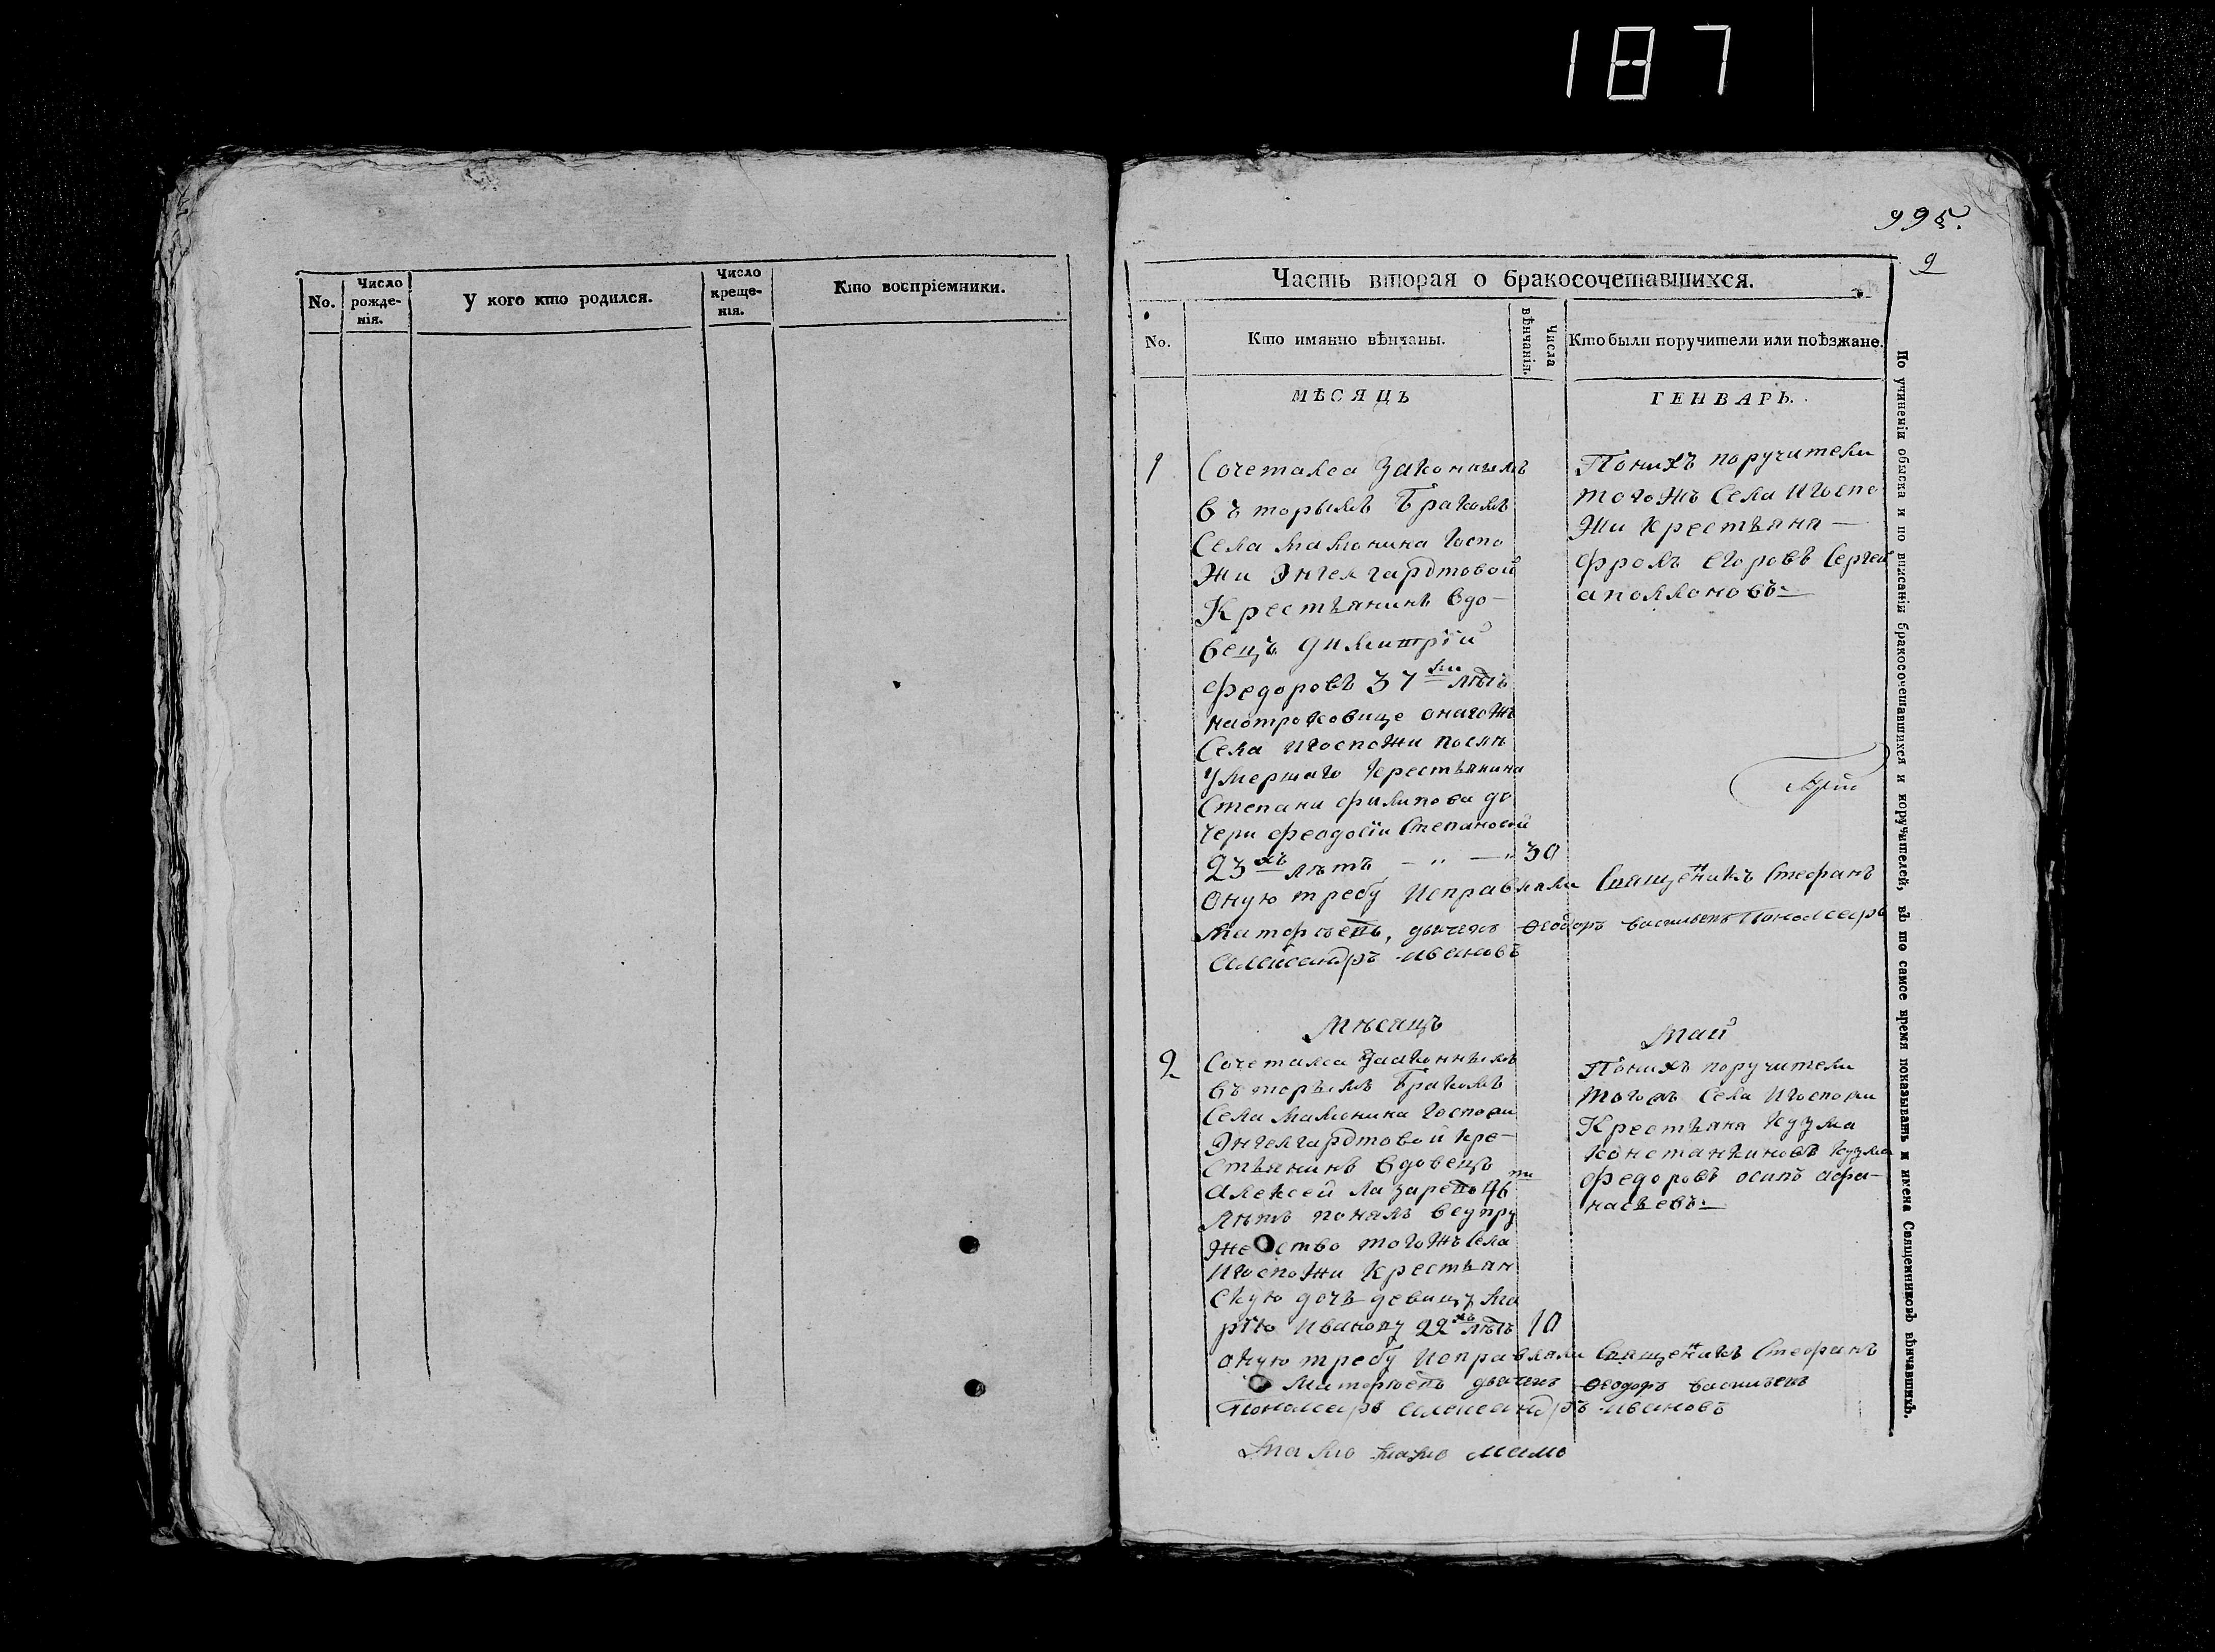 187
No.
Число рожде-нія.
У кого кто родился.
Число креще-нія.
Кто воспріемники.
995.
9
Часть вторая о бракосочетавшихся.
No.
Кто имянно вѣнчаны.
Числа вѣнчанія.
Кто были поручители или поѣзжане.
МѢСЯЦЪ
ГЕНВАРЬ.
1
Сочетался Законнымъ
въторымъ Бракомъ
Села Мамонина Госпо
жи Энгелгардтовой
Крестьянинъ вдо-
вецъ Димитрій
Федоровъ 37 ми лѣтъ
наотроковице онагожъ
Села игоспожи послѣ
Умершаго Крестьянина
Степана Филипова до
чери Феодосіи Степановой
23 хъ лѣтъ
30
Понихъ поручители
тогожъ Села игоспо
жи Крестьяна
Фролъ Егоровъ Сергей
аполлоновъ
Оную требу Исправляли Священникъ Стефанъ
дьячекъ Ѳеодоръ васильевъ Пономарь
Александръ ивановъ
Мѣсяцъ
Май
2
Сочетался Законнымъ
въторымъ Бракомъ
Села Мамонина Госпожи
Энгелгардтовой Кре-
стьянинъ вдовецъ
Алексей Лазаревъ
лѣтъ понялъ всупру
жество тогожъ Села
игоспожи Крестьян
скую дочь девицу Ма
рію Иванову 22 хъ лѣтъ
10
Понихъ поручители
тогожъ Села игоспожи
Крестьяна Кузма
Константиновъ Кузма
Федоровъ осипъ афа-
насьевъ
оную требу Исправляли Священникъ Стефанъ
дьячекъ Ѳеодоръ васильевъ
Пономарь александръ ивановъ
мамо
По учиненіи обыска и по вписаніи бракосочетавшихся и поручителей, въ то самое время показывать и имена Священниковъ вѣнчавшихъ.